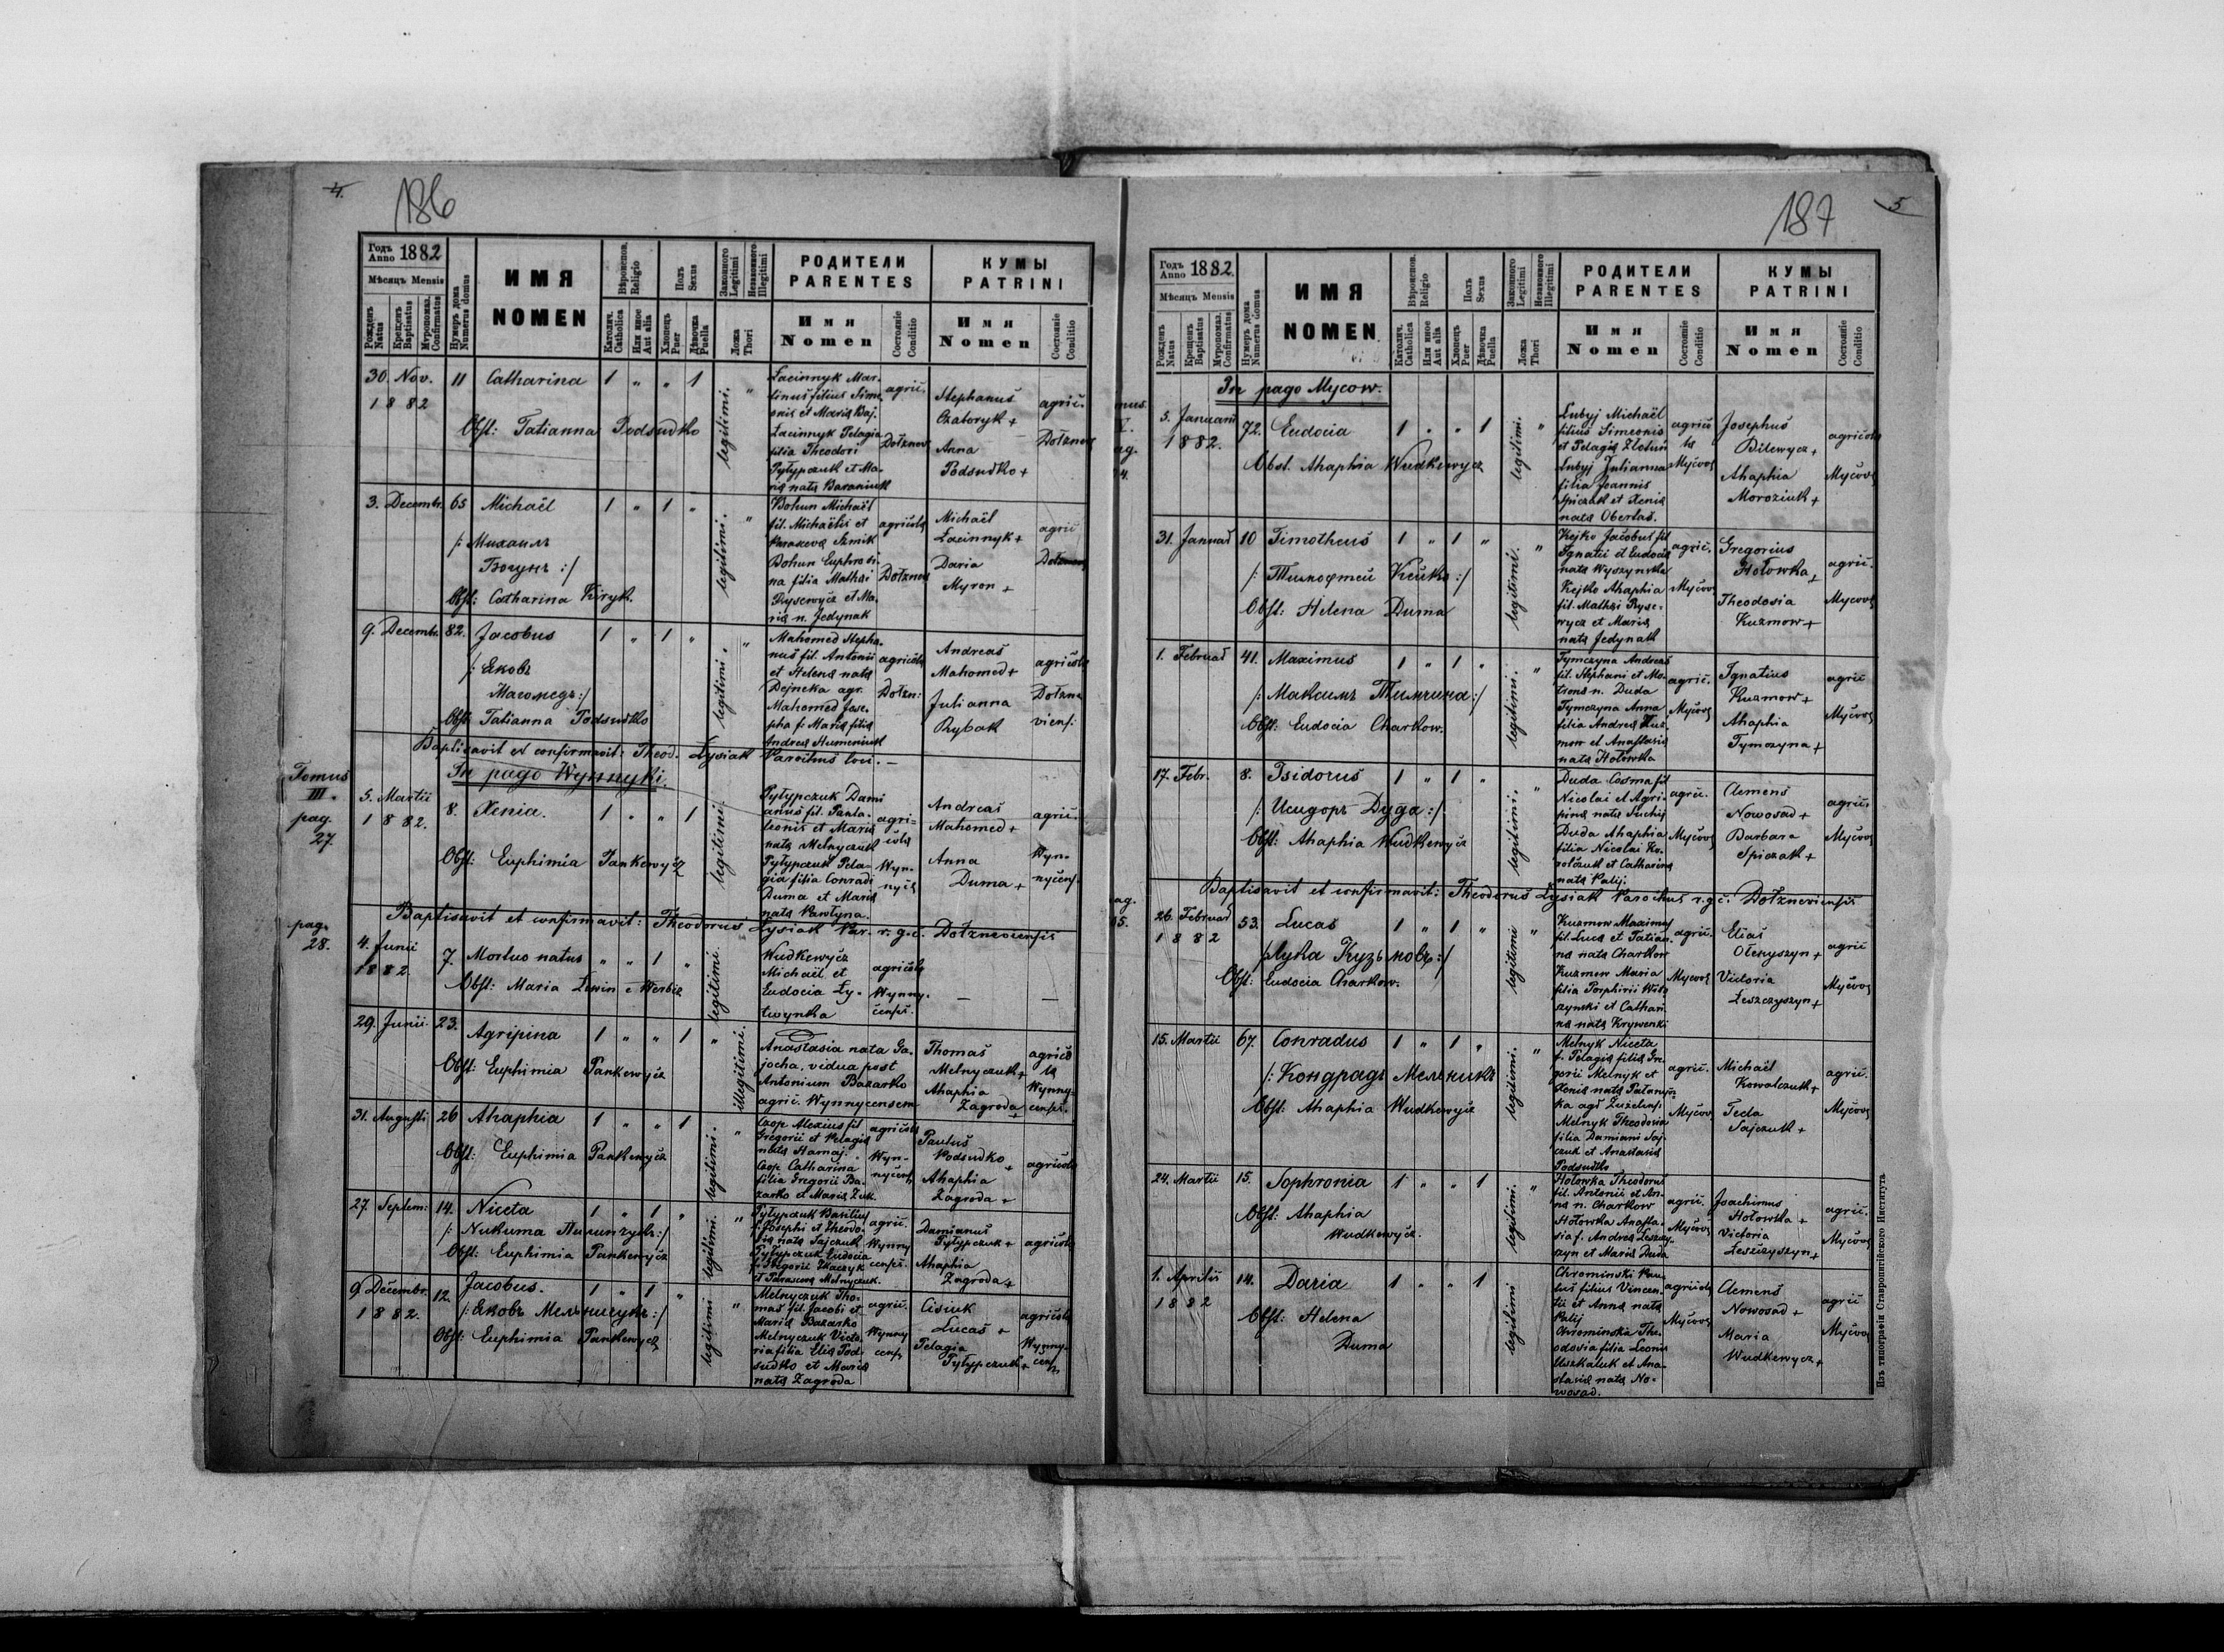 4.
186
Годъ Anno 1882
Мѣсяцъ Mensis
Рожденъ Natus
Крещенъ Baptisatus
Мѵропомаз. Confirmatus
Нумеръ дома Numerus domus
ИМЯ
NOMEN
Вѣроиспов. Religio
Католич. Catholica
Или иное Aut alia
Полъ Sexus
Хлопецъ Puer
Дѣвочка Puella
Законного Legitimi
Незаконного Illegitimi
Ложа Thori
РОДИТЕЛИ
PARENTES
Имя
Nomen
Состояніе Conditio
КУМЫ
PATRINI
Имя
Nomen
Состояніе Conditio
30. Nov. 11 Catharina 1 " " 1
1882
Obst: Tatianna Podsudko
legitimi.
Łacinnyk Mar-
tinus filius Sime
onis et Maria Baj.
Łacinnyk Pelagia
filia Theodori
Pyłypczuk et Ma-
ria nata Baraniuk
agric.
Dołznov
Stephanus
Czaboryk +
Anna
Podsudko +
agric.
Dołznov
3. Decembr. 65 Michaël 1 " 1 "
/: Михаилъ
Богунъ :/
Obst: Catharina Kiryk.
legitimi.
Bohun Michaël
fil. Michaëlis et
Parasceva Szmik
Bohun Euphrosi-
na filia Mathæi
Rysewycz et Ma-
ria n. Jedynak
agricola
Dołznov
Michaël
Łacinnyk +
Daria
Myron +
agric
Dołznov
9. Decembr. 82. Jacobus 1 " 1 "
/: Яковъ
Магомедъ :/
Obst: Tatianna Podsudko
legitimi.
Mahomed Stepha-
nus fil. Antonii
et Helena nata
Dejneka agr.
Mahomed Jose-
pha f: Maria filia
Andrea Humeniuk
agricola
Dołzn:
Andreas
Mahomed +
Julianna
Rybak
agricola
Dołzno
viens:
Baptisavit et confirmavit: Theod. Łysiak Parochus loci. —
In pago Wynnyki.
Tomus
III.
pag.
27.
5. Martii 8. Xenia. 1 " " 1
1882.
Obst: Euphimia Pankewycz
legitimi.
Pyłypczuk Dami
anus fil. Panta-
leonis et Maria
nata Melnyczuk
Pyłypczuk Pela-
gia filia Conradi
Duma et Maria
nata Pawłyna.
agri-
cola
Wyn-
nycs
Andreas
Mahomed +
Anna
Duma +
agric.
Wyn-
nycens.
Baptisavit et confirmavit: Theodorus Łysiak Par. r. g. c. Dołznoviensis
pag.
28.
4. Junii 7. Mortuo natus " " 1 "
1882
Obst: Maria Lewin e Werbiz
legitimi.
Wudkewycz
Michaël et
Eudocia Ły-
twynka
agricola
Wynny-
censis.
29. Junii 23. Agripina 1 " " 1 "
Obst: Euphimia Pankewycz
illegitimi.
Anastasia nata Ga-
jocha, vidua post
Antonium Bazarko
agric. Wynnycensem
Thomas
Melnyczuk +
Ahaphia
Zagroda +
agrico
la
Wynny-
censis.
31. Augusti 26 Ahaphia 1 " " 1
Obst: Euphimia Pankewycz
legitimi.
Czop Alexius fil
Gregorii et Pelagia
nata Harnaj.
Czop Catharina
filia Gregorii Ba-
zarko et Maria Zuk.
agricola
Wyn-
nycens
Paulus
Podsudko +
Ahaphia
Zagroda +
agricola
27. Septem: 14. Niceta 1 " 1 "
/: Никита Пилипчукъ :/
Obst: Euphimia Pankewycz
legitimi.
Pyłypczuk Basilius
f. Josephi et Theodo-
sia nata Sajczuk
Pyłypczuk Eudocia
f. Gregorii Tkaczyk
et Parasceva Melnyczuk.
agric.
Wynny
censis.
Damianus
Pyłypczuk +
Ahaphia
Zagroda +
agricola
9. Decembr. 12. Jacobus. 1 " 1 "
1882.
/: Яковъ Мельничукъ :/
Obst: Euphimia Pankewycz
legitimi
Melnyczuk Tho-
mas fil. Jacobi et
Maria Bazarko
Melnyczuk Victo-
ria filia Elia Pod-
sudko et Maria
nata Zagroda
agric.
Wynny
cens
Cisiuk
Lucas +
Pelagia
Pyłypczuk +
agricola
Wynny-
cens
5
187
Годъ Anno 1882.
Мѣсяцъ Mensis
Рожденъ Natus
Крещенъ Baptisatus
Мѵропомаз. Confirmatus
Нумеръ дома Numerus domus
ИМЯ
NOMEN
Вѣроиспов. Religio
Католич. Catholica
Или иное Aut alia
Полъ Sexus
Хлопецъ Puer
Дѣвочка Puella
Законного Legitimi
Незаконного Illegitimi
Ложа Thori
РОДИТЕЛИ
PARENTES
Имя
Nomen
Состояніе Conditio
КУМЫ
PATRINI
Имя
Nomen
Состояніе Conditio
In pago Mycow.
5. Januarii 72. Eudocia 1 " " 1
1882.
Obst. Ahaphia Wudkewycz
legitimi.
Łubyj Michaël
filius Simeonis
et Pelagia Złotuń
Łubyj Julianna
filia Joannis
Spiczak et Xenia
nata Obertas.
agrico
la
Mycov
Josephus
Bilewycz +
Ahaphia
Moroziuk +
agricola
Mycov
31. Januar 10 Timotheus 1 " 1 "
/: Тимофтей Кейко :/
Obst: Helena Duma
legitimi.
Kejko Jacobus fil
Ignatii et Eudocia
nata Wyszynska
Kejko Ahaphia
fil. Mathæi Ryse-
wycz et Maria
nata Jedynak
agric.
Mycov
Gregorius
Hołowka +
Theodosia
Kuzmow +
agric.
Mycov
1. Februar 41. Maximus 1 " 1 "
/: Максимъ Тимчина :/
Obst: Eudocia Charkow.
legitimi.
Tymczyna Andreas
fil. Stephani et Ma-
trona n. Duda
Tymczyna Anna
filia Andrea Kuz-
mow et Anastasia
nata Hołowka
agric.
Mycov
Ignatius
Kuzmow +
Ahaphia
Tymczyna +
agric
Mycov
17. Febr. 8. Isidorus 1 " 1 "
/: Исидоръ Дуда :/
Obst: Ahaphia Wudkewycz
legitimi.
Duda Cosma fil
Nicolai et Agri-
pina nata Suchij
Duda Ahaphia
filia Nicolai Ko-
rolczuk et Catharina
nata Palij.
agric.
Mycov
Clemens
Nowosad +
Barbara
Spiczak +
agric.
Mycov
Baptisavit et confirmavit: Theodorus Łysiak Parochus r. g. c. Dołznoviensis
26. Februar 53. Lucas 1 " 1 "
1882
/: Лука Кузьмовъ :/
Obst: Eudocia Charkow.
legitimi
Kuzmow Maximus
fil. Luca et Tatian-
na nata Charkow
Kuzmow Maria
filia Porphirii Wos-
zynski et Cathari
na nata Krywenki
agric.
Mycov
Elias
Ołeksyszyn +
Victoria
Leszczyszyn +
agric
Mycov
15. Martii 67. Conradus 1 " 1 "
/: Кондрадъ Мельникъ
Obst: Ahaphia Wudkewycz
legitimi.
Melnyk Niceta
f. Pelagia filia Gre-
gorii Melnyk et
Xenia nata
ka
Melnyk Theodosia
filia Damiani Saj-
czuk et Anastasia
Podsudko
agric.
Mycov
Michaël
Kowalczuk +
Tecla
Sajczuk +
agric.
Mycov
24. Martii 15. Sophronia 1 " " 1
Obst: Ahaphia
Wudkewycz.
legitimi.
Hołowka Theodorus
fil. Antonii et An-
na n. Charkow
Hołowka Anasta-
sia f. Andrea Leszczy-
szyn et Maria Duda
agric.
Mycov
Joachimus
Hołowka +
Victoria
Leszczyszyn +
agric.
Mycov
1. Aprilis 14. Daria 1 " " 1
1882
Obst: Helena
Duma
legitimi
Chrominski Pau-
lus filius Vincen-
tii et Anna nata
Palij
Chrominska The-
odosia filia Leonis
Uszkaluk et Ana-
stasia nata No-
wosad.
agricola
Mycov
Clemens
Nowosad +
Maria
Wudkewycz +
agric
Mycov
Изъ типографіи Ставропигійского Института